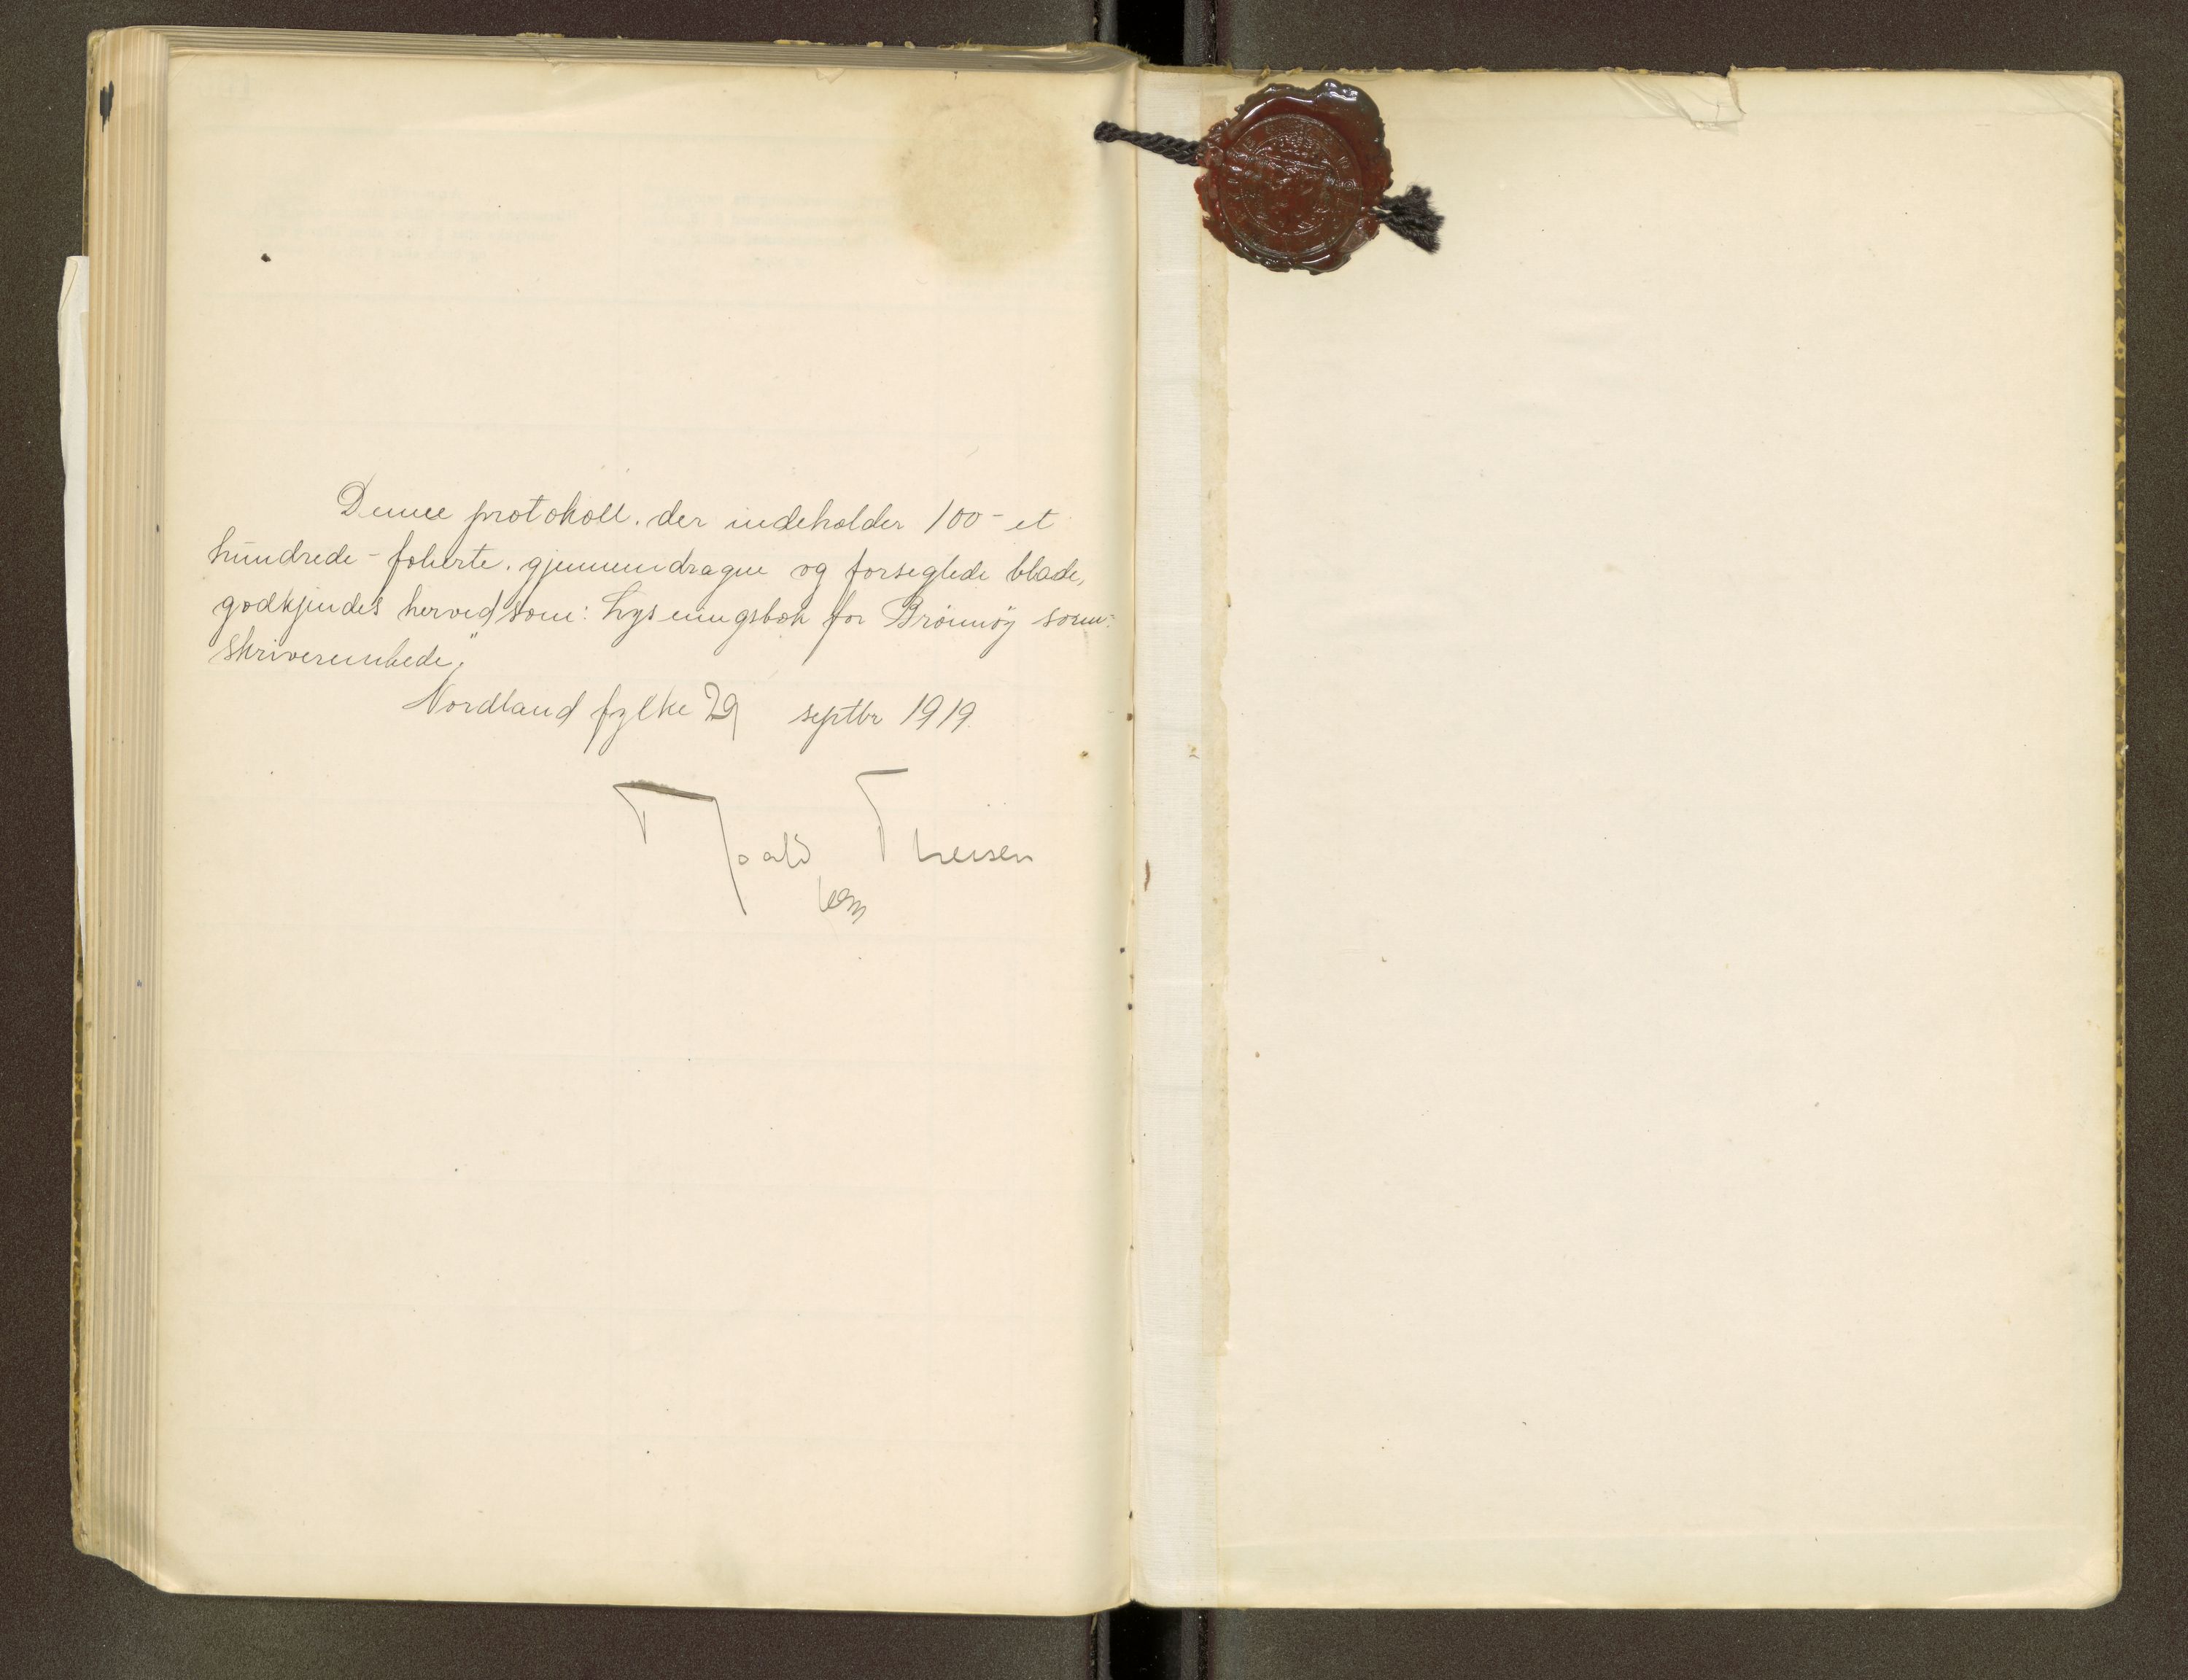 Denne protokoll, der indeholder 100 - et
hundrede - folierte, gjennemdragne og forseglede blade,
godkjendes herved som: Lysningsbok for Brönnöy soren-
skriverembede."
Nordland fylke 29 septbr 1919.
Theisen